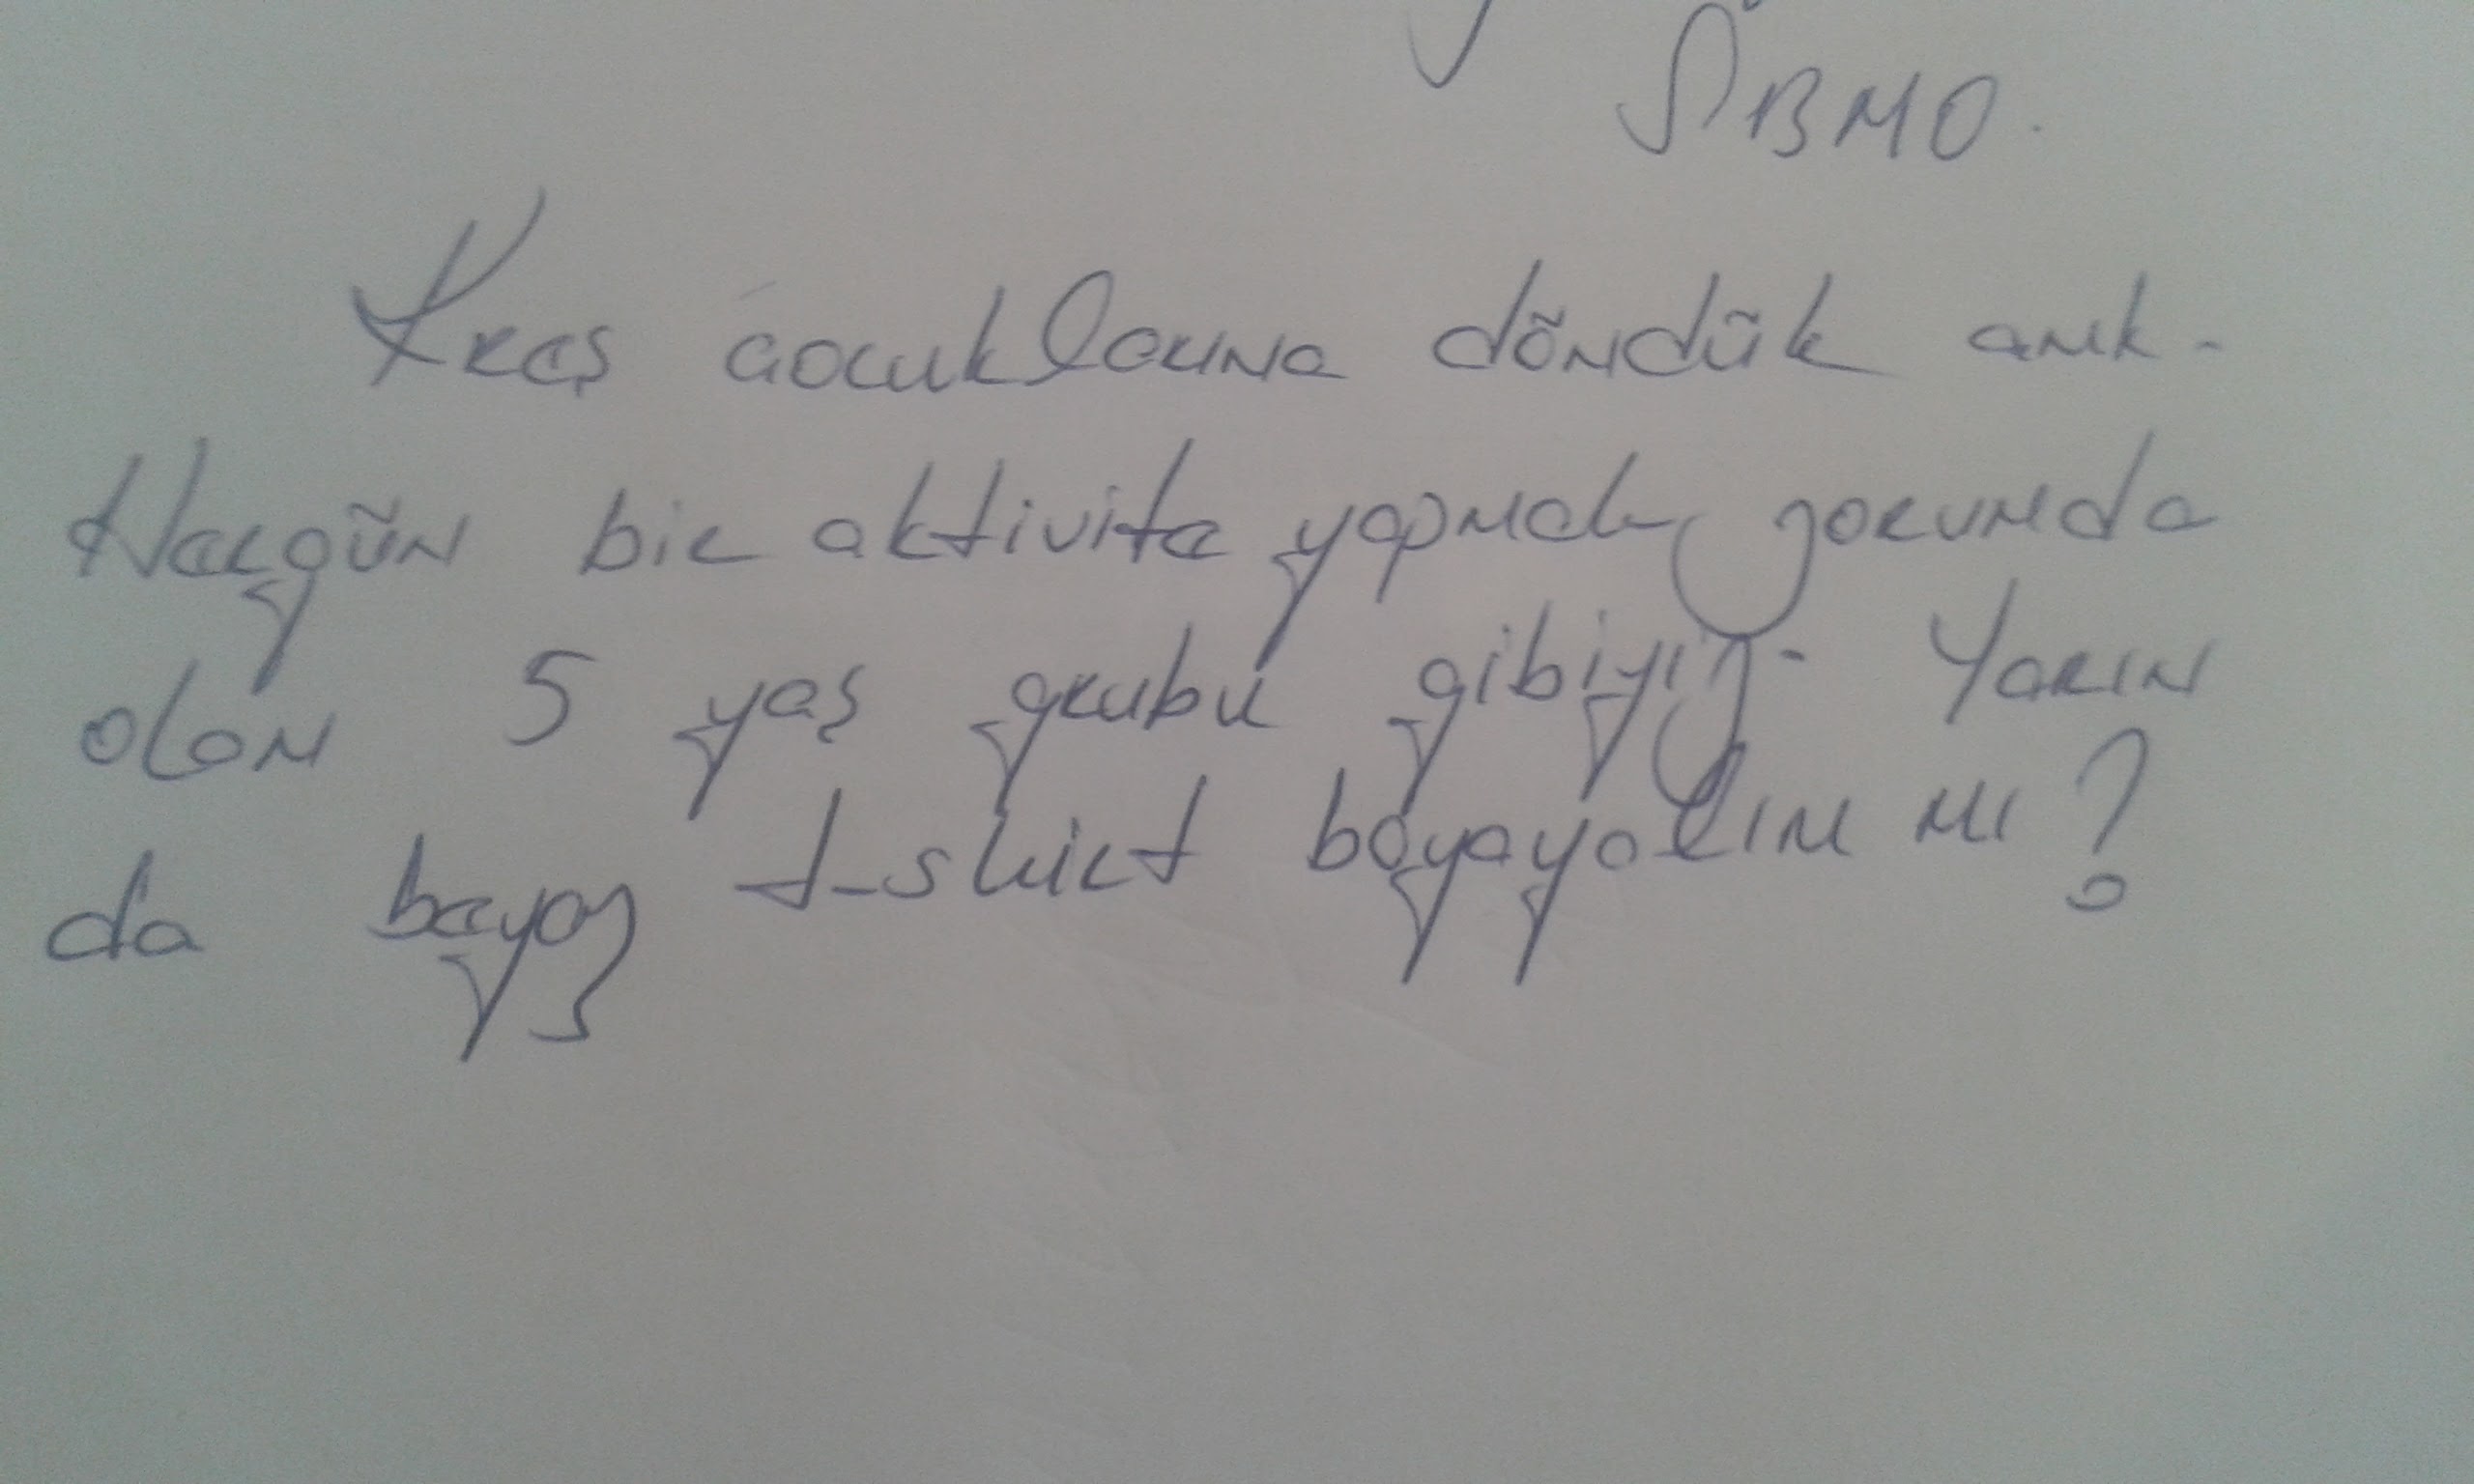 ŞBMO.
Kreş çocuklarına döndük artık.
Hergün bir aktivite yapmak zorunda
olan 5 yaş grubu gibiyiz. Yarın
da beyaz t-shirt boyayalım mı?